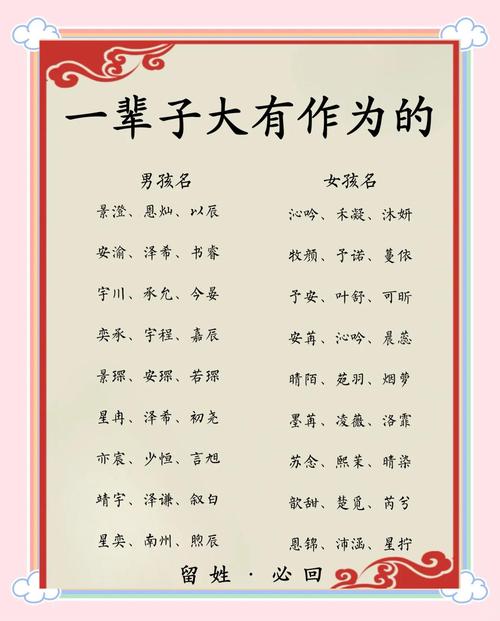 一辈子大有作为的
男孩名 女孩名
景澄、恩灿、以辰 沁吟、禾凝、沐妍
安渝、泽希、书睿 牧颜、予诺、蔓依
宇川、承允、今晏 予安、叶舒、可昕
奕承、宇程、嘉辰 安苒、沁吟、晨蕊
景琛、安琛、若琛 晴陌、苑羽、烟萝
星冉、泽希、初尧 墨苒、凌薇、洛霏
亦宸、少恒、言旭 苏念、熙茉、晴染
靖宇、泽谦、叙白 歆甜、楚觅、芮兮
星奕、南州、煦辰 恩锦、沛涵、星拧
留姓·必回